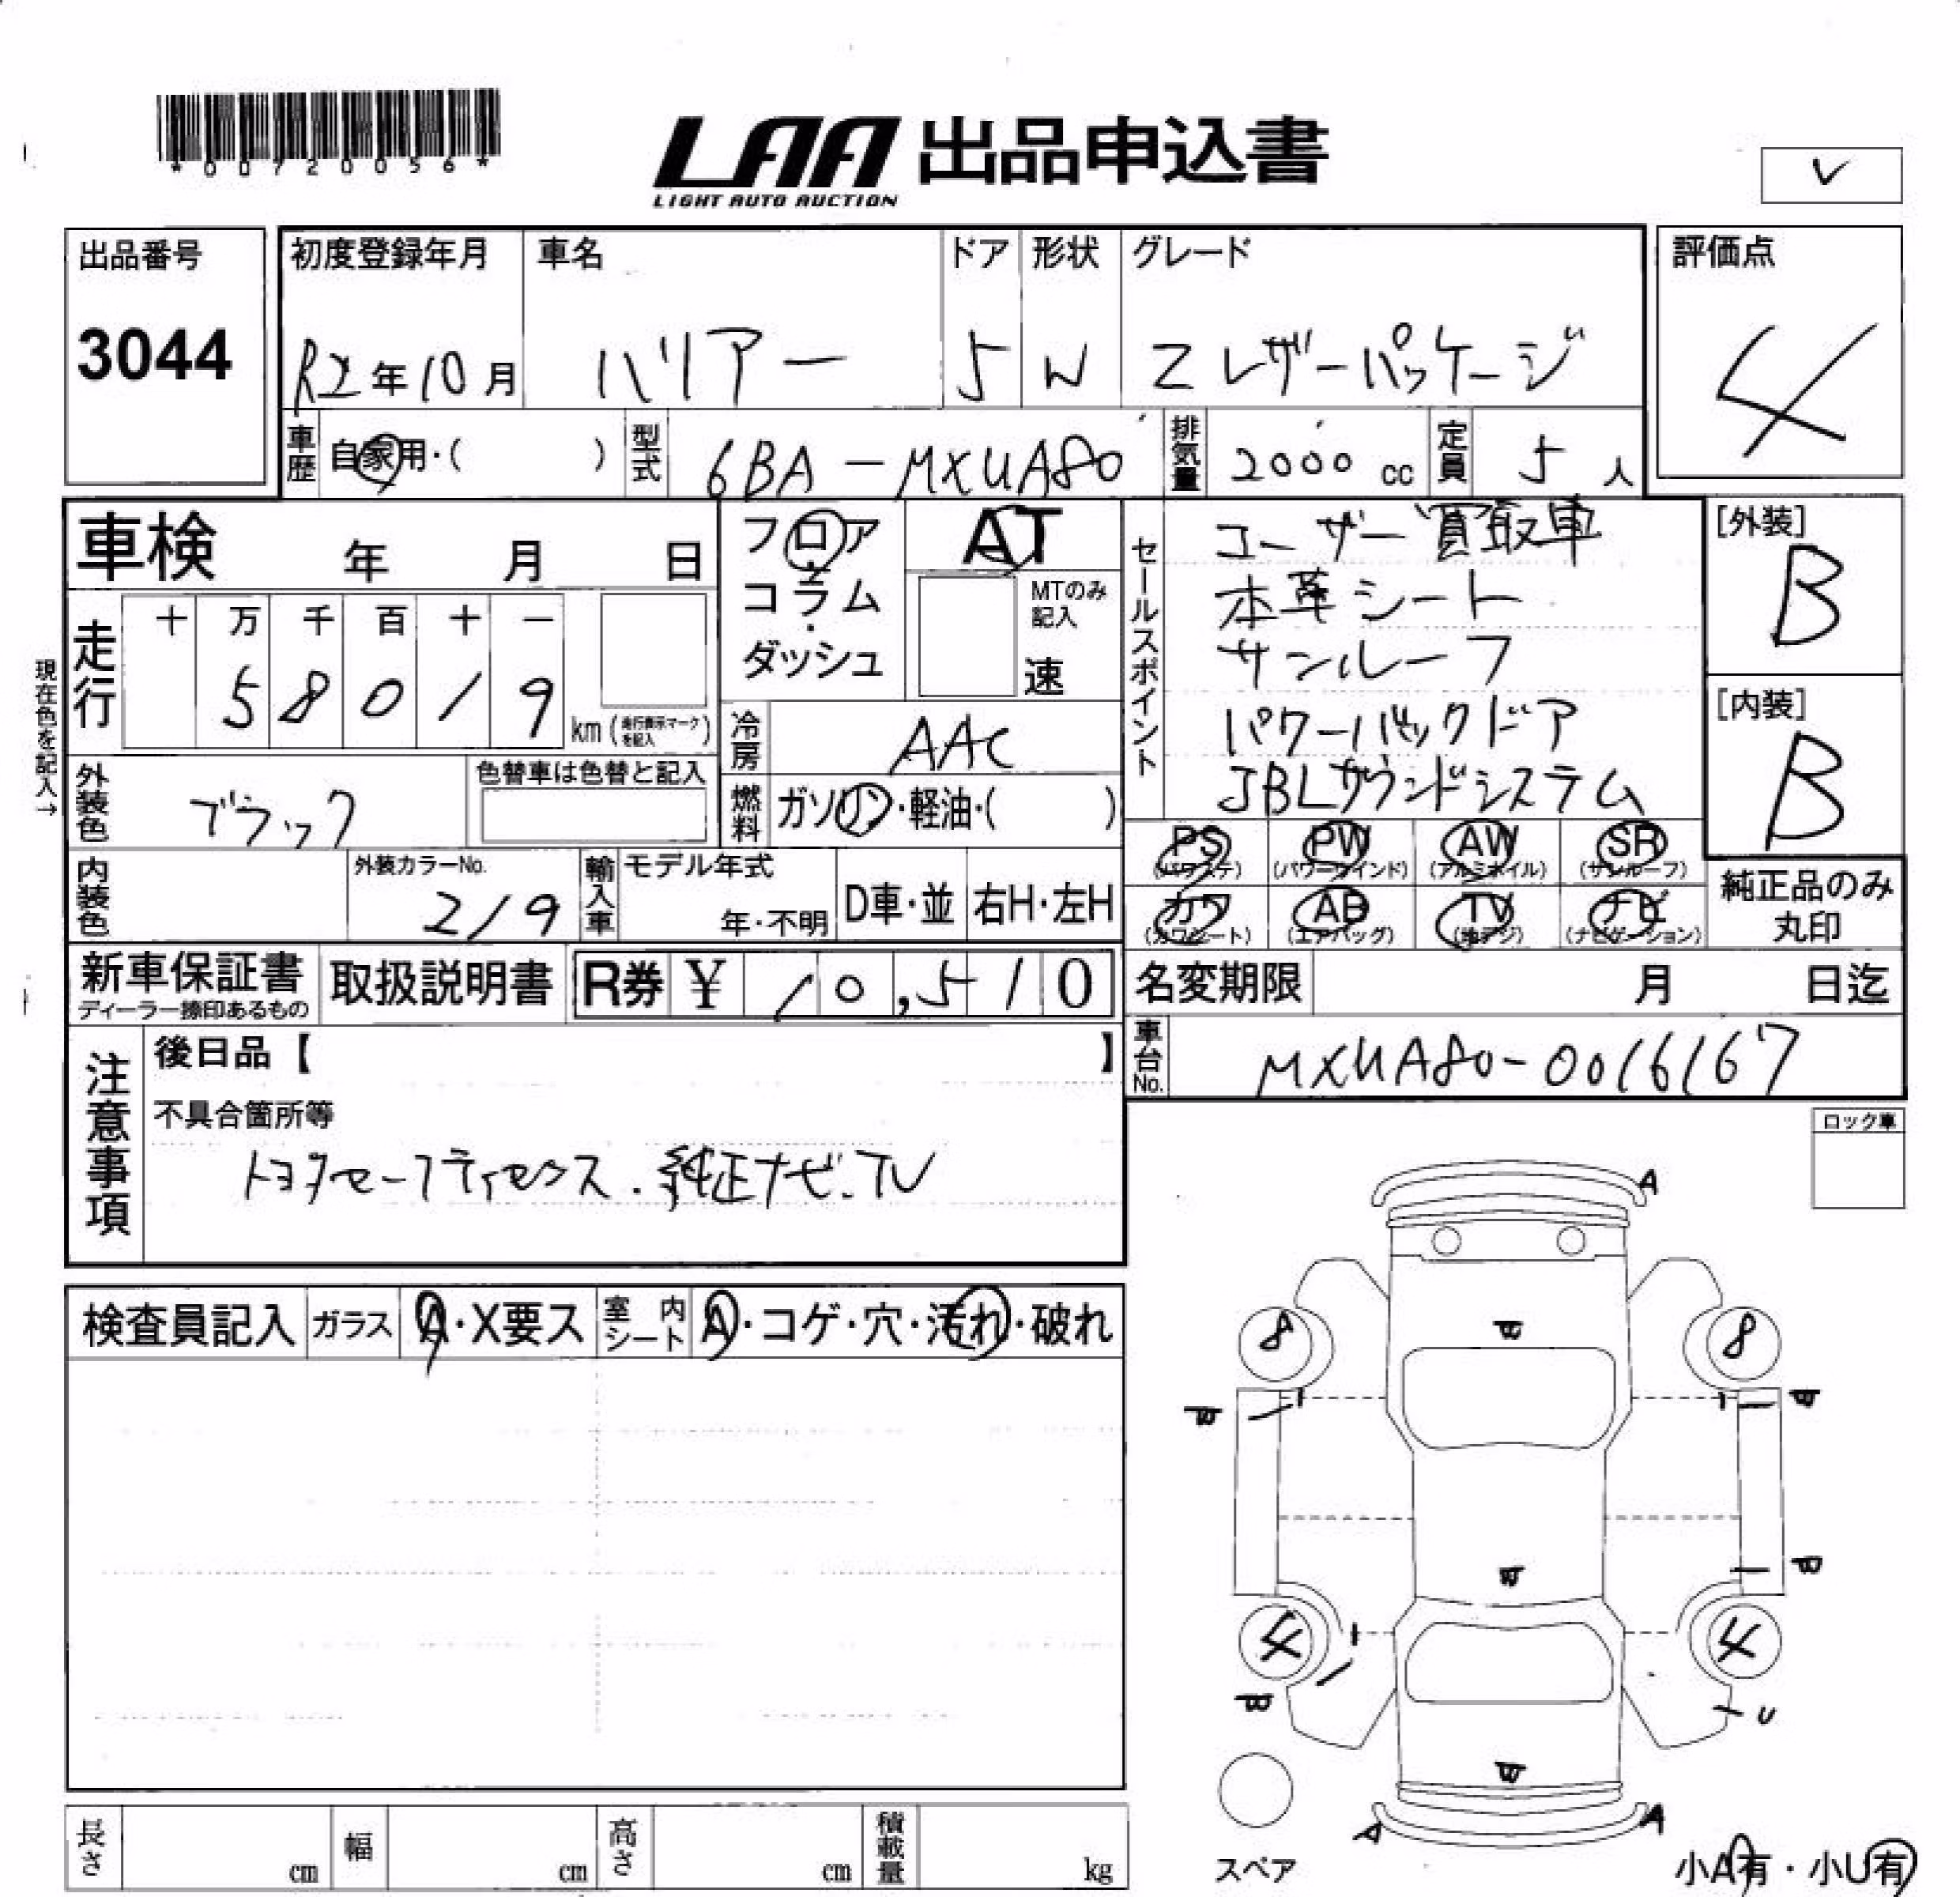 *00720056*
LAA 出品申込書
LIGHT AUTO AUCTION
出品番号
3044
初度登録年月
R2年10月
車名
ハリアー
ドア
5
形状
W
グレード
Z レザーパッケージ
評価点
4
車歴 自家用・( )
型式 6BA-MXUA80
排気量 2000 cc
定員 5 人
車検 年 月 日
フロア・コラム・ダッシュ
AT
MTのみ記入
速
セールスポイント
ユーザー買取車
本革シート
サンルーフ
パワーバックドア
JBLサウンドシステム
[外装]
B
[内装]
B
現在色を記入→
走行 十 万 千 百 十 一
5 8 0 1 9 km (走行表示マークを記入)
冷房 AAC
外装色 ブラック
色替車は色替と記入
燃料 ガソリン・軽油・( )
PS (パワステ) PW (パワーウインド) AW (アルミホイル) SR (サンルーフ)
カワ (カワシート) AB (エアバッグ) TV (地デジ) ナビ (ナビゲーション)
純正品のみ丸印
内装色
外装カラーNo.
219
輸入車 モデル年式
年・不明
D車・並 右H・左H
新車保証書
ディーラー捺印あるもの
取扱説明書
R券 ¥ 10,510
名変期限 月 日迄
車台No. MXUA80-0016167
注意事項
後日品【 】
不具合箇所等
トヨタセーフティセンス.純正ナビ.TV
ロック車
検査員記入 ガラス A・X要ス 室内シート A・コゲ・穴・汚れ・破れ
A
8 8
4 4
U
A A
スペア
小A有・小U有
長さ cm 幅 cm 高さ cm 積載量 kg